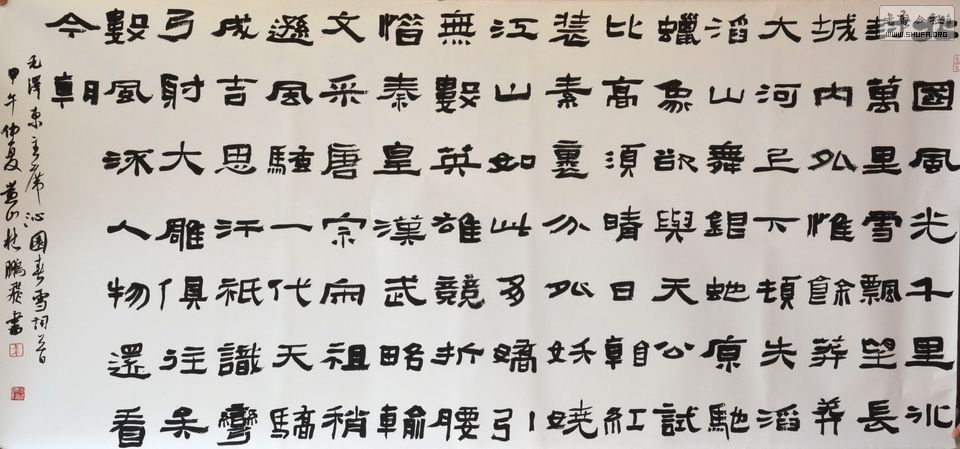 北國風光千里冰
封萬里雪飄望長
城內外惟餘莽莽
大河上下頓失滔
滔山舞銀蛇原馳
蠟象欲與天公試
比高須晴日看紅
裝素裹分外妖嬈
江山如此多嬌引
無數英雄競折腰
惜秦皇漢武略輸
文采唐宗宋祖稍
遜風騷一代天驕
成吉思汗祇識彎
弓射大雕俱往矣
數風流人物還看
今朝
毛澤東主席沁園春雪詞一首
甲午仲夏黃山鵬飛書
WWW.SHUFA.ORG